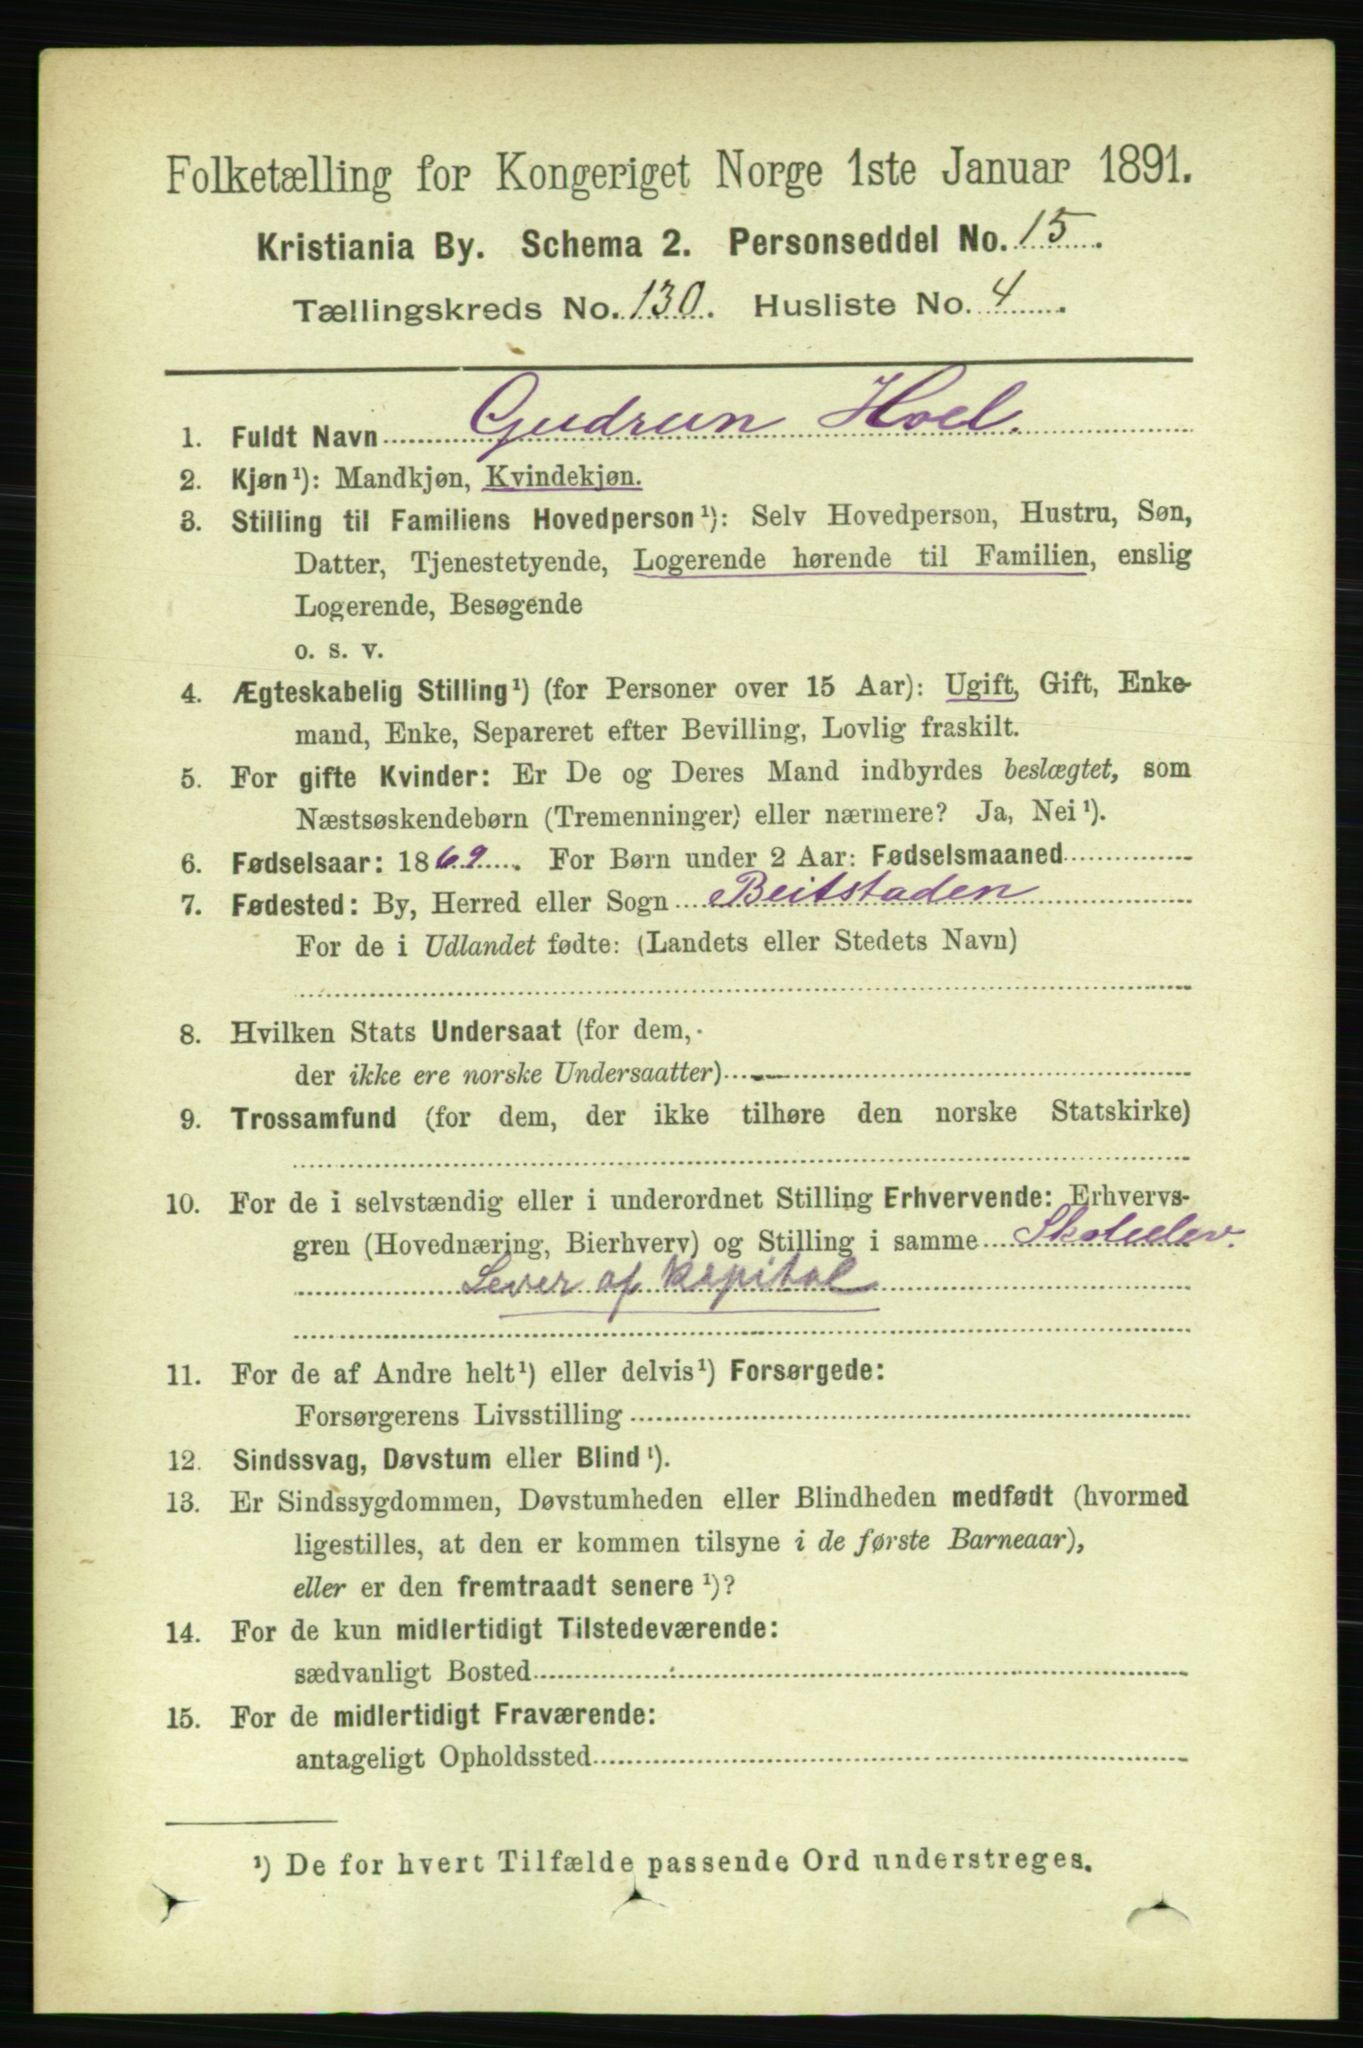 Folketælling for Kongeriget Norge 1ste Januar 1891.
Kristiania By. Schema 2. Personseddel No. 15.
Tællingskreds No. 130. Husliste No. 4.
1. Fuldt Navn Gudrun Hoel.
2. Kjøn¹): Mandkjøn, Kvindekjøn.
3. Stilling til Familiens Hovedperson¹): Selv Hovedperson, Hustru, Søn,
Datter, Tjenestetyende, Logerende hørende til Familien, enslig
Logerende, Besøgende
o. s. v.
4. Ægteskabelig Stilling¹) (for Personer over 15 Aar): Ugift, Gift, Enke-
mand, Enke, Separeret efter Bevilling, Lovlig fraskilt.
5. For gifte Kvinder: Er De og Deres Mand indbyrdes beslægtet, som
Næstsøskendebørn (Tremenninger) eller nærmere? Ja, Nei¹).
6. Fødselsaar: 1869. For Børn under 2 Aar: Fødselsmaaned
7. Fødested: By, Herred eller Sogn Beitstaden
For de i Udlandet fødte: (Landets eller Stedets Navn)
8. Hvilken Stats Undersaat (for dem,
der ikke ere norske Undersaatter)
9. Trossamfund (for dem, der ikke tilhøre den norske Statskirke)
10. For de i selvstændig eller i underordnet Stilling Erhvervende: Erhvervs-
gren (Hovednæring, Bierhverv) og Stilling i samme Skoleelev.
Lever af Kapital
11. For de af Andre helt¹) eller delvis¹) Forsørgede:
Forsørgerens Livsstilling
12. Sindssvag, Døvstum eller Blind¹).
13. Er Sindssygdommen, Døvstumheden eller Blindheden medfødt (hvormed
ligestilles, at den er kommen tilsyne i de første Barneaar),
eller er den fremtraadt senere¹)?
14. For de kun midlertidigt Tilstedeværende:
sædvanligt Bosted
15. For de midlertidigt Fraværende:
antageligt Opholdssted
¹) De for hvert Tilfælde passende Ord understreges.